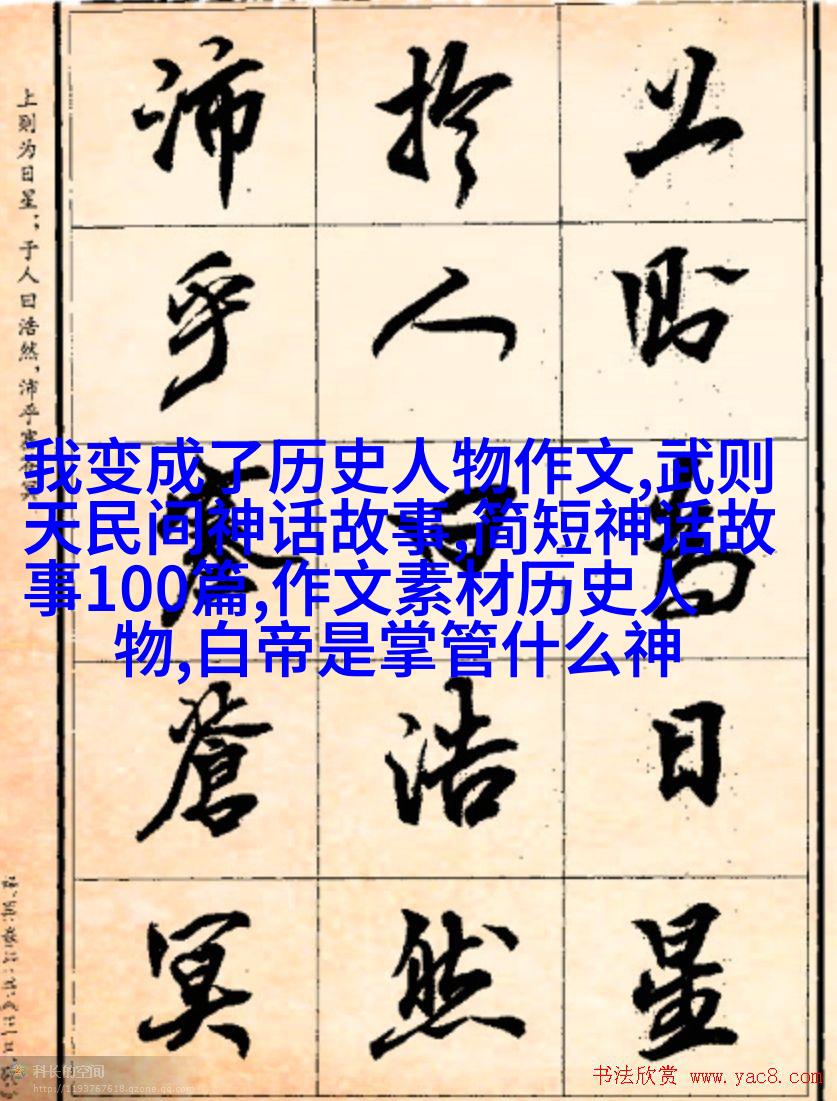 上则为日星；于人曰浩然，沛乎塞苍冥
上则为日星
於人曰浩然
沛乎塞蒼冥
我变成了历史人物作文,武则
天民间神话故事,简短神话故
事100篇,作文素材历史人
物,白帝是掌管什么神
科长的空间
http://1193767618.qzone.qq.com
书法欣赏 www.yac8.com